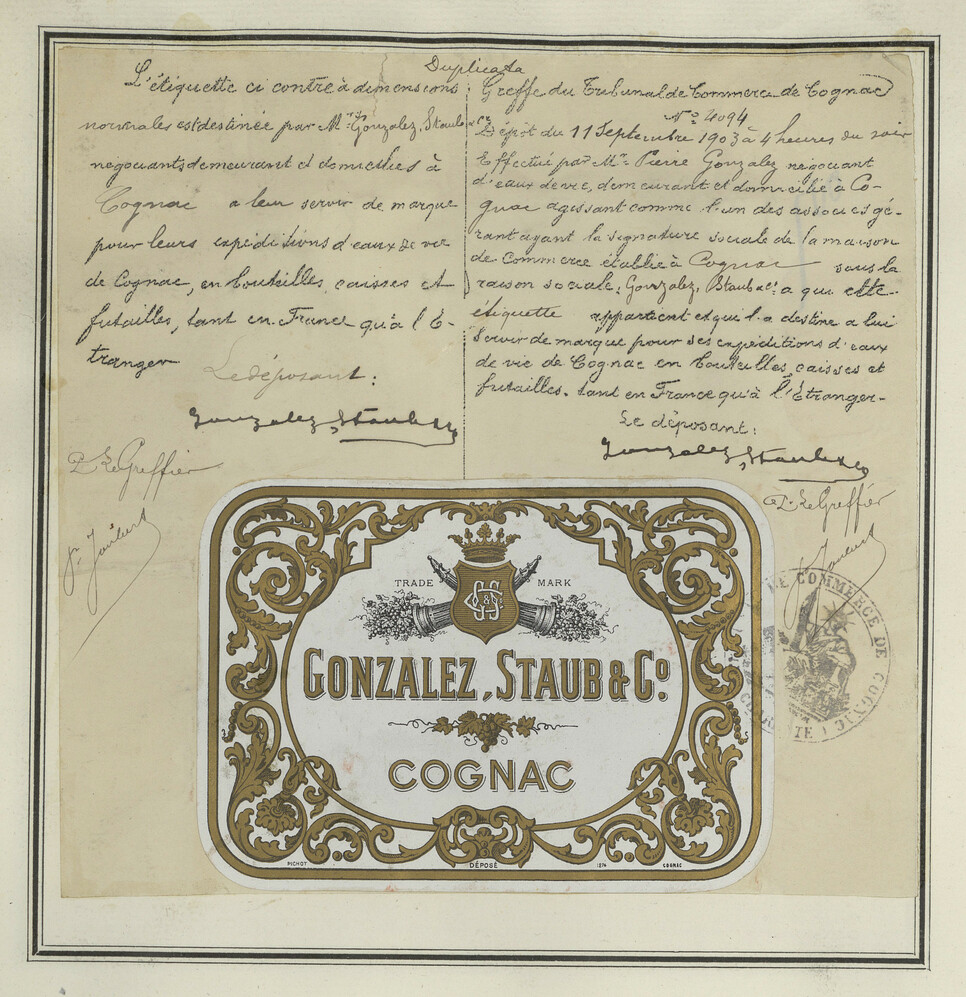 Duplicata
L'étiquette ci contre à dimensions
normales est destinée par Mrs Gonzalez, Staub & Ce
négociants demeurant et domiciliés à
Cognac a leur servir de marque
pour leurs expéditions d'eaux de vie
de Cognac, en bouteilles, caisses et
futailles, tant en France qu'à l'É-
tranger
Le déposant:
Gonzalez, Staub & Co
P. Le Greffier
Greffe du Tribunal de Commerce de Cognac
No 4094
Dépôt du 11 Septembre 1903 à 4 heures du soir
Effectué par Mr. Pierre Gonzalez négociant
d'eaux de vie, demeurant et domicilié à Co-
gnac agissant comme l'un des associés gé-
rant ayant la signature sociale de la maison
de Commerce établie à Cognac sous la
raison sociale: Gonzalez, Staub & Ce. a qui cette
étiquette appartient et qui l'a destine a lui
servir de marque pour ses expéditions d'eaux
de vie de Cognac en bouteilles, caisses et
futailles. tant en France qu'à l'Étranger-
Le déposant:
Gonzalez, Staub & Co
P. Le Greffier
DE COMMERCE DE COGNAC
TRADE MARK
GS&C
GONZALEZ, STAUB & Co.
COGNAC
PICHOT DÉPOSÉ 1874 COGNAC